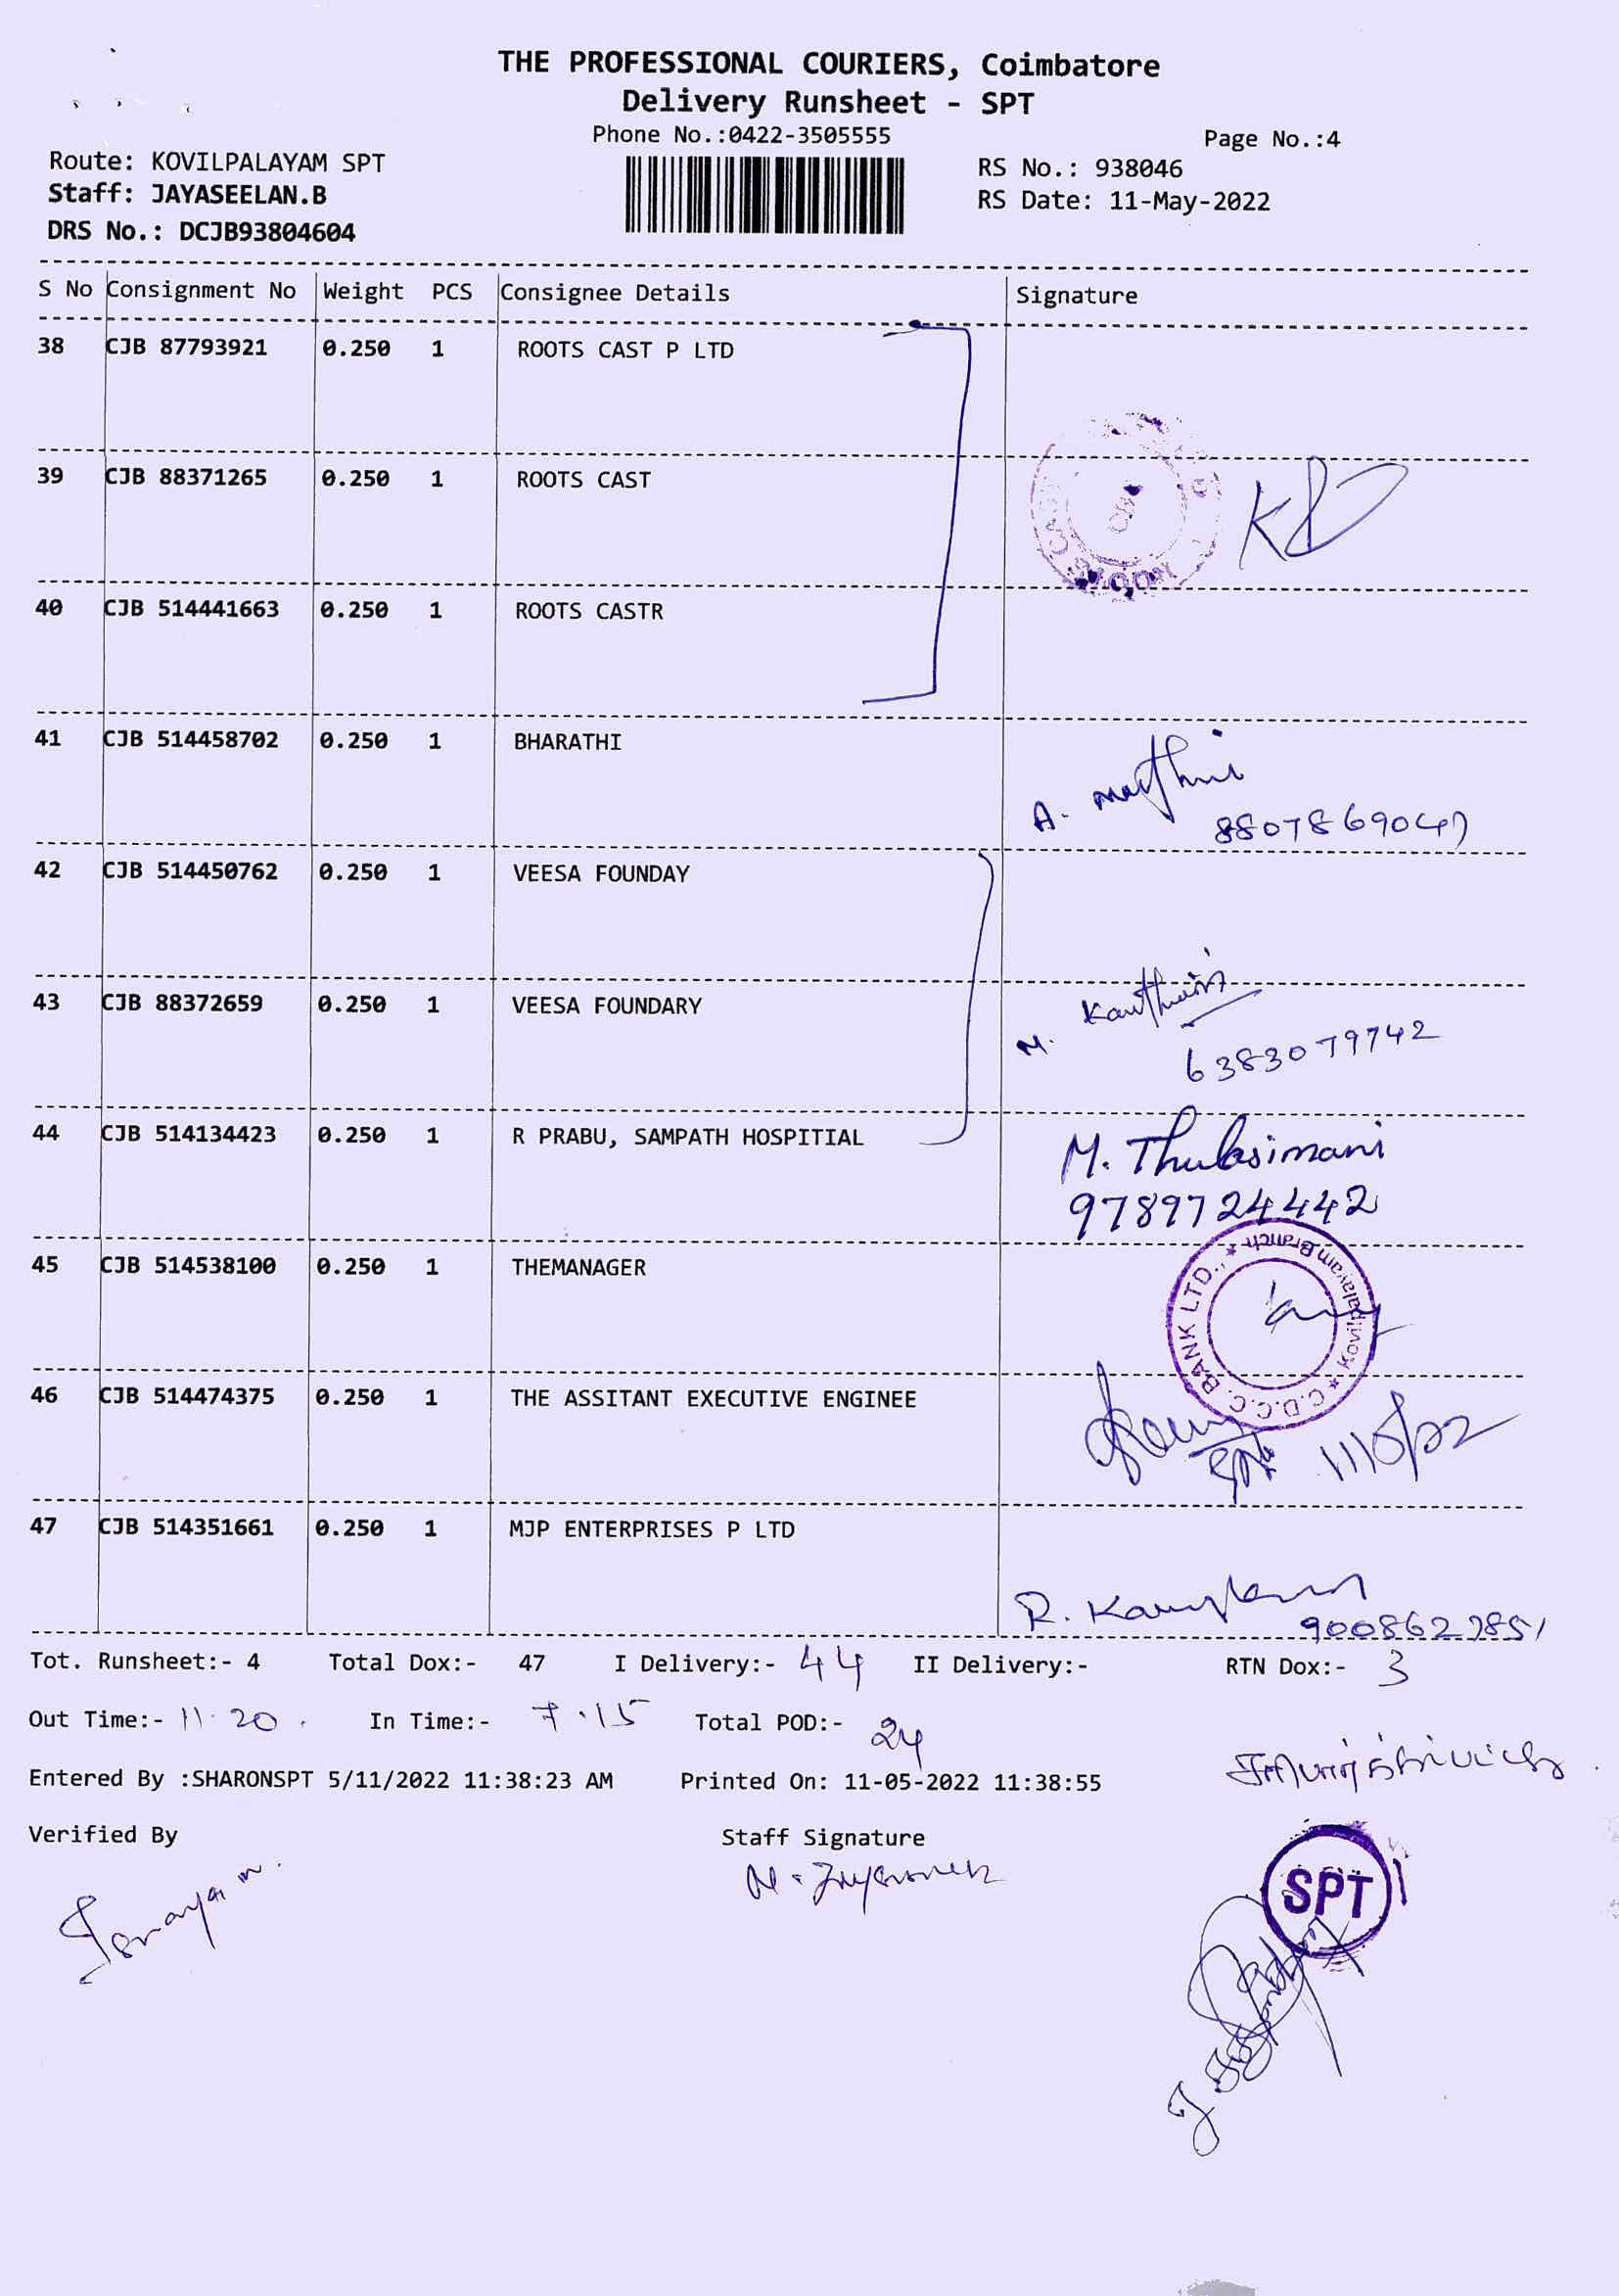 THE PROFESSIONAL COURIERS, Coimbatore
Delivery Runsheet - SPT
Phone No.:0422-3505555
Page No.:4
Route: KOVILPALAYAM SPT
RS No.: 938046
Staff: JAYASEELAN.B
RS Date: 11-May-2022
DRS No.: DCJB93804604
S No Consignment No Weight PCS Consignee Details Signature
38 CJB 87793921 0.250 1 ROOTS CAST P LTD
39 CJB 88371265 0.250 1 ROOTS CAST
40 CJB 514441663 0.250 1 ROOTS CASTR
41 CJB 514458702 0.250 1 BHARATHI
A.
42 CJB 514450762 0.250 1 VEESA FOUNDAY
43 CJB 88372659 0.250 1 VEESA FOUNDARY
M.
6383079742
44 CJB 514134423 0.250 1 R PRABU, SAMPATH HOSPITIAL
M. Thulasimani
9789724442
45 CJB 514538100 0.250 1 THEMANAGER
* C.D.C.C. BANK LTD., * Kovilpalayam Branch
46 CJB 514474375 0.250 1 THE ASSITANT EXECUTIVE ENGINEE
47 CJB 514351661 0.250 1 MJP ENTERPRISES P LTD
R.
Tot. Runsheet:- 4 Total Dox:- 47 I Delivery:- 44 II Delivery:- RTN Dox:- 3
Out Time:- 11.20 In Time:- 7.15 Total POD:- 24
Entered By :SHARONSPT 5/11/2022 11:38:23 AM Printed On: 11-05-2022 11:38:55
Verified By Staff Signature
SPT